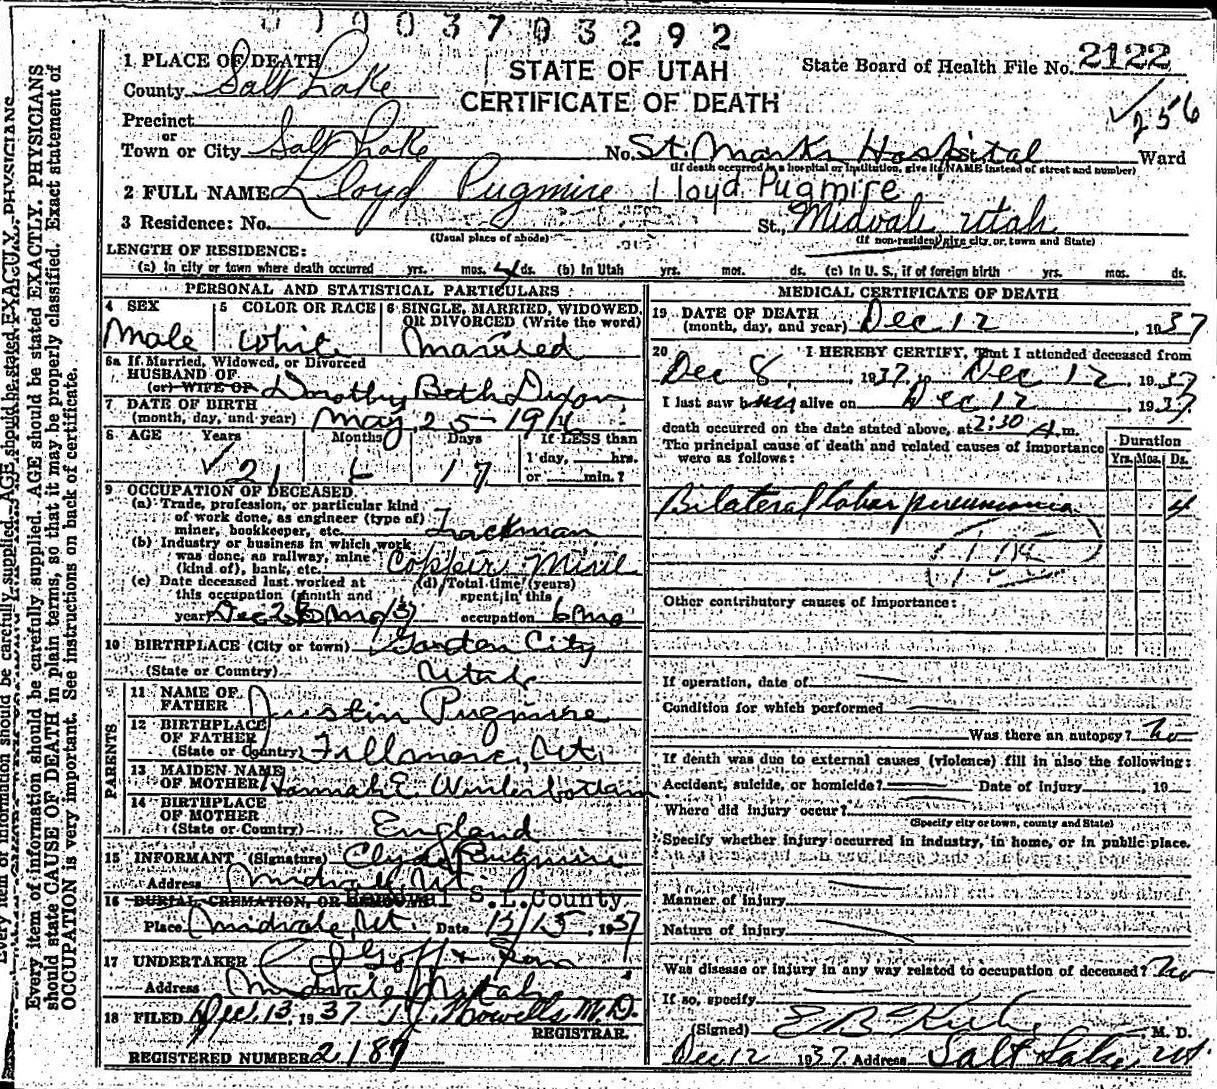 0 1 0 0 3 7 0 3 2 9 2
STATE OF UTAH
CERTIFICATE OF DEATH
State Board of Health File No. 2122
256
1 PLACE OF DEATH
County Salt Lake
Precinct
or
Town or City Salt Lake No. St. Marks Hospital Ward
(If death occurred in a hospital or institution, give its NAME instead of street and number)
2 FULL NAME Lloyd Pugmire Lloyd Pugmire
3 Residence: No. St., Midvale Utah
(Usual place of abode) (If non-resident give city or town and State)
LENGTH OF RESIDENCE:
(a) In city or town where death occurred yrs. mos. 4 ds. (b) In Utah yrs. mos. ds. (c) In U. S., if of foreign birth yrs. mos. ds.
PERSONAL AND STATISTICAL PARTICULARS
4 SEX Male
5 COLOR OR RACE White
6 SINGLE, MARRIED, WIDOWED, OR DIVORCED (Write the word) Married
6a If Married, Widowed, or Divorced
HUSBAND OF
(or) WIFE OF Dorothy Beth Dixon
7 DATE OF BIRTH
(month, day, and year) May 25-1916
8 AGE Years Months Days If LESS than
21 6 17 1 day, hrs.
or min.?
9 OCCUPATION OF DECEASED
(a) Trade, profession, or particular kind
of work done, as engineer (type of)
miner, bookkeeper, etc. Trackman
(b) Industry or business in which work
was done, as railway, mine
(kind of), bank, etc. Copper Mine
(c) Date deceased last worked at
this occupation (month and
year)
(d) Total time (years)
spent in this
occupation 6 mo
10 BIRTHPLACE (City or town) Garden City
(State or Country) Utah
PARENTS
11 NAME OF
FATHER Justin Pugmire
12 BIRTHPLACE
OF FATHER
(State or Country) Fillmore, Ut.
13 MAIDEN NAME
OF MOTHER Hannah E. Winterbottom
14 BIRTHPLACE
OF MOTHER
(State or Country) England
15 INFORMANT (Signature) Clyde Pugmire
Address Midvale, Ut.
16 BURIAL, CREMATION, OR REMOVAL S.L. County.
Place Midvale, Ut. Date 12/15, 1937
17 UNDERTAKER Goff & Son
Address Midvale, Utah
18 FILED Dec. 13, 1937 Howells M.D.
REGISTRAR.
REGISTERED NUMBER 2187
MEDICAL CERTIFICATE OF DEATH
19 DATE OF DEATH
(month, day, and year) Dec 12, 1937
20 I HEREBY CERTIFY, That I attended deceased from
Dec 8, 1937, to Dec 12, 1937
I last saw him alive on Dec 12, 1937
death occurred on the date stated above, at 2:30 A.m.
The principal cause of death and related causes of importance
were as follows:
Duration
Yrs. Mos. Ds.
Bilateral lobar pneumonia 4
108
Other contributory causes of importance:
If operation, date of
Condition for which performed
Was there an autopsy? No
If death was due to external causes (violence) fill in also the following:
Accident, suicide, or homicide? Date of injury, 19
Where did injury occur?
(Specify city or town, county and State)
Specify whether injury occurred in industry, in home, or in public place.
Manner of injury
Nature of injury
Was disease or injury in any way related to occupation of deceased? No
If so, specify
(Signed) M. D.
Dec 12 1937 Address Salt Lake, Ut.
Every item of information should be carefully supplied. AGE should be stated EXACTLY. PHYSICIANS
should state CAUSE OF DEATH in plain terms, so that it may be properly classified. Exact statement of
OCCUPATION is very important. See instructions on back of certificate.